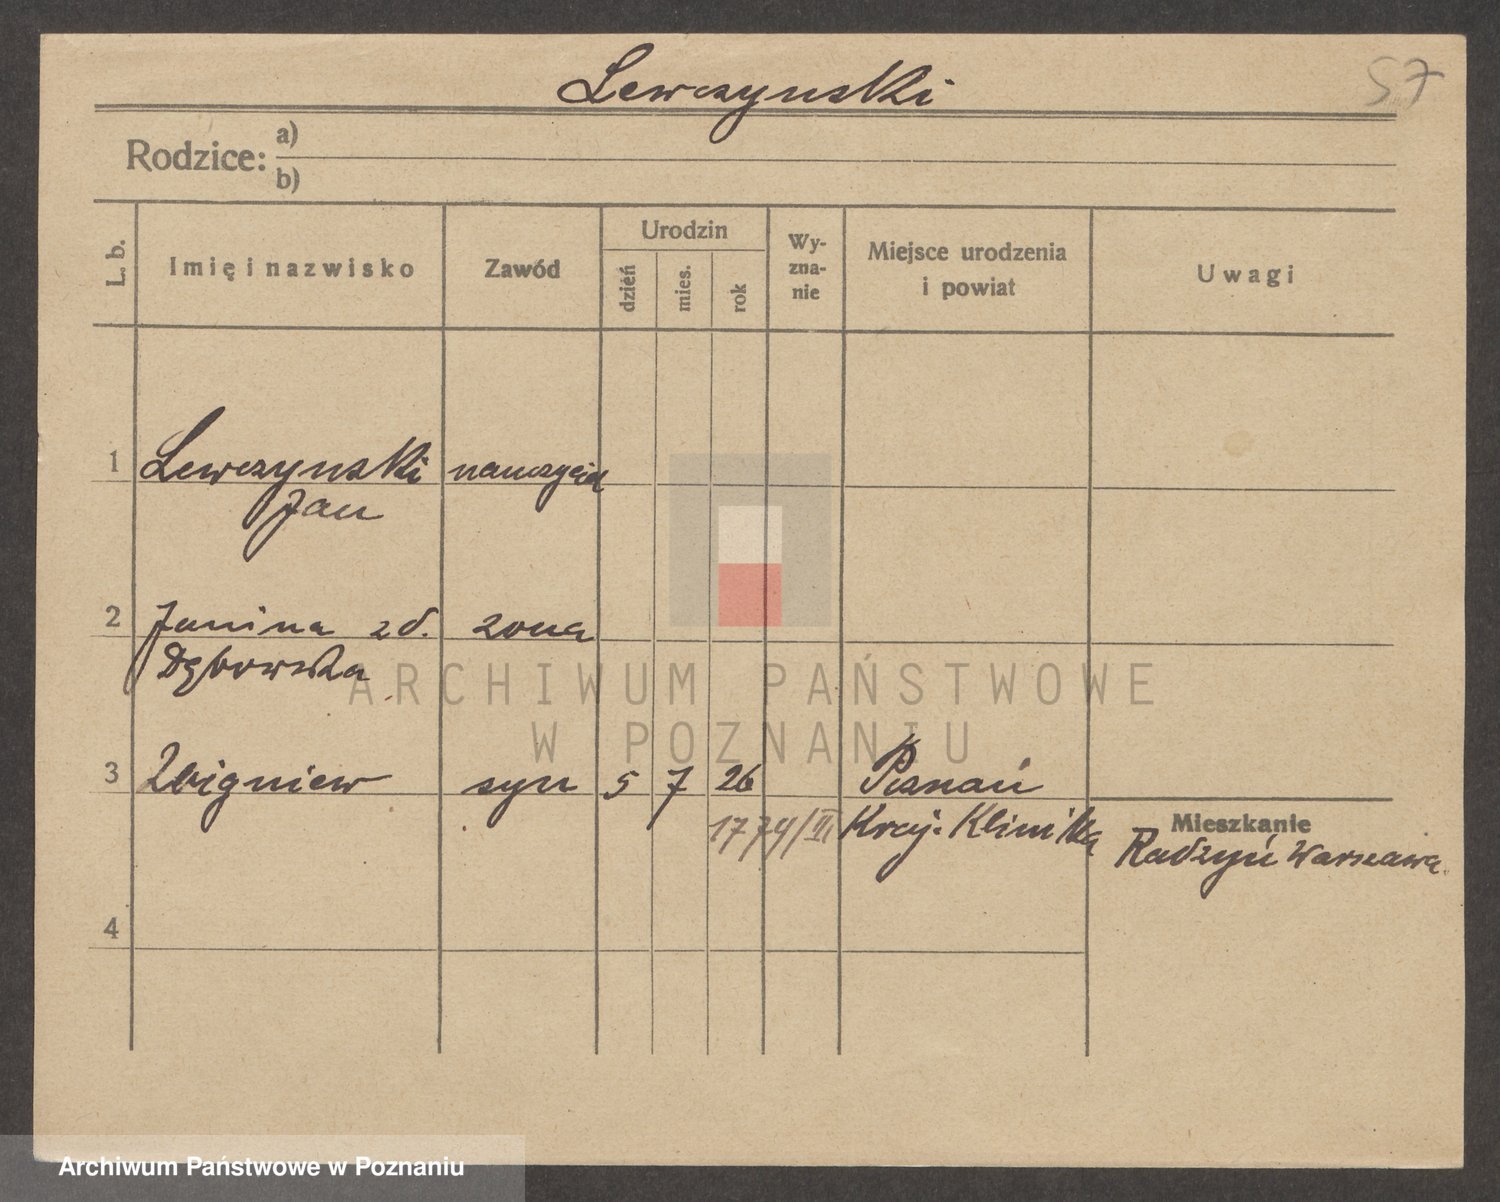 Lewczynski
57
Rodzice: a)
b)
L. b.
Imię i nazwisko
Zawód
Urodzin
dzień
mies.
rok
Wy-
zna-
nie
Miejsce urodzenia
i powiat
Uwagi
1 Lewczynski nauczyciel
Jan
2 Janina zd. zona
Dębowska
3 Zbigniew syn 5 7 26 Poznań
1774/III Kraj. Klinika
Mieszkanie
Radzyń Warszawa.
4
ARCHIWUM PAŃSTWOWE
W POZNANIU
Archiwum Państwowe w Poznaniu